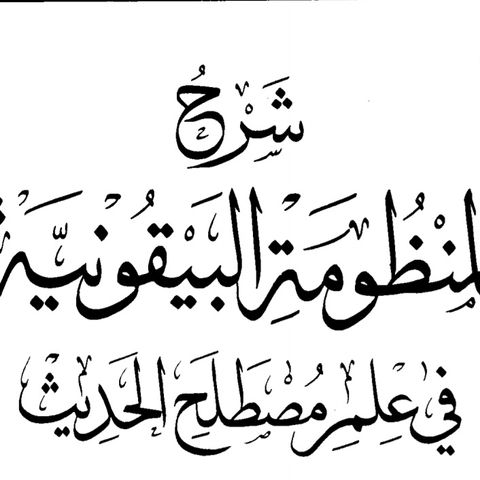 شَرْحُ
المنْظُومَةِ البَيْقُونيَّة
في عِلمِ مُصْطَلَحِ الحَدِيث